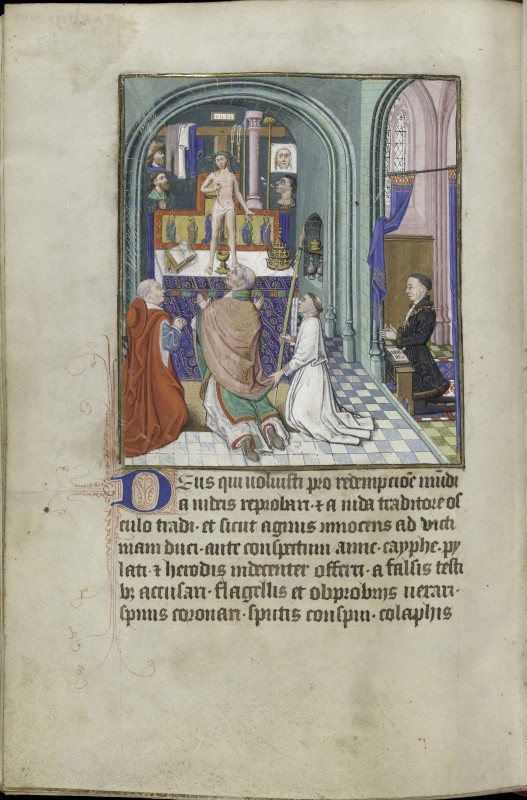 Deus qui uoluisti pro redempcioē mūdi
a iudeis reprobari · ⁊ a iuda traditore os
culo tradi · et sicut agnus innocens ad victi
mam duci · ante conspectum anne · cayphe · py
lati · ⁊ herodis indecenter offerri · a falsis testi
bꝫ accusari · flagellis et obprobriis uexari ·
spinis coronari · sputis conspui · colaphis